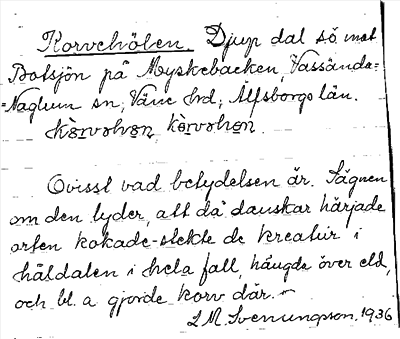 Korvehölen. Djup dal sö mot
Botsjön på Myskebacken, Vassända=
=Naglum sn, Väne hd, Älfsborgs län.
Ovisst vad betydelsen är. Sägnen
om den lyder, att då danskar härjade
orten kokade-stekte de kreatur i
håldalen i hela fall, hängde över eld,
och bl. a gjorde korv där. -
L M. Svenungson. 1936